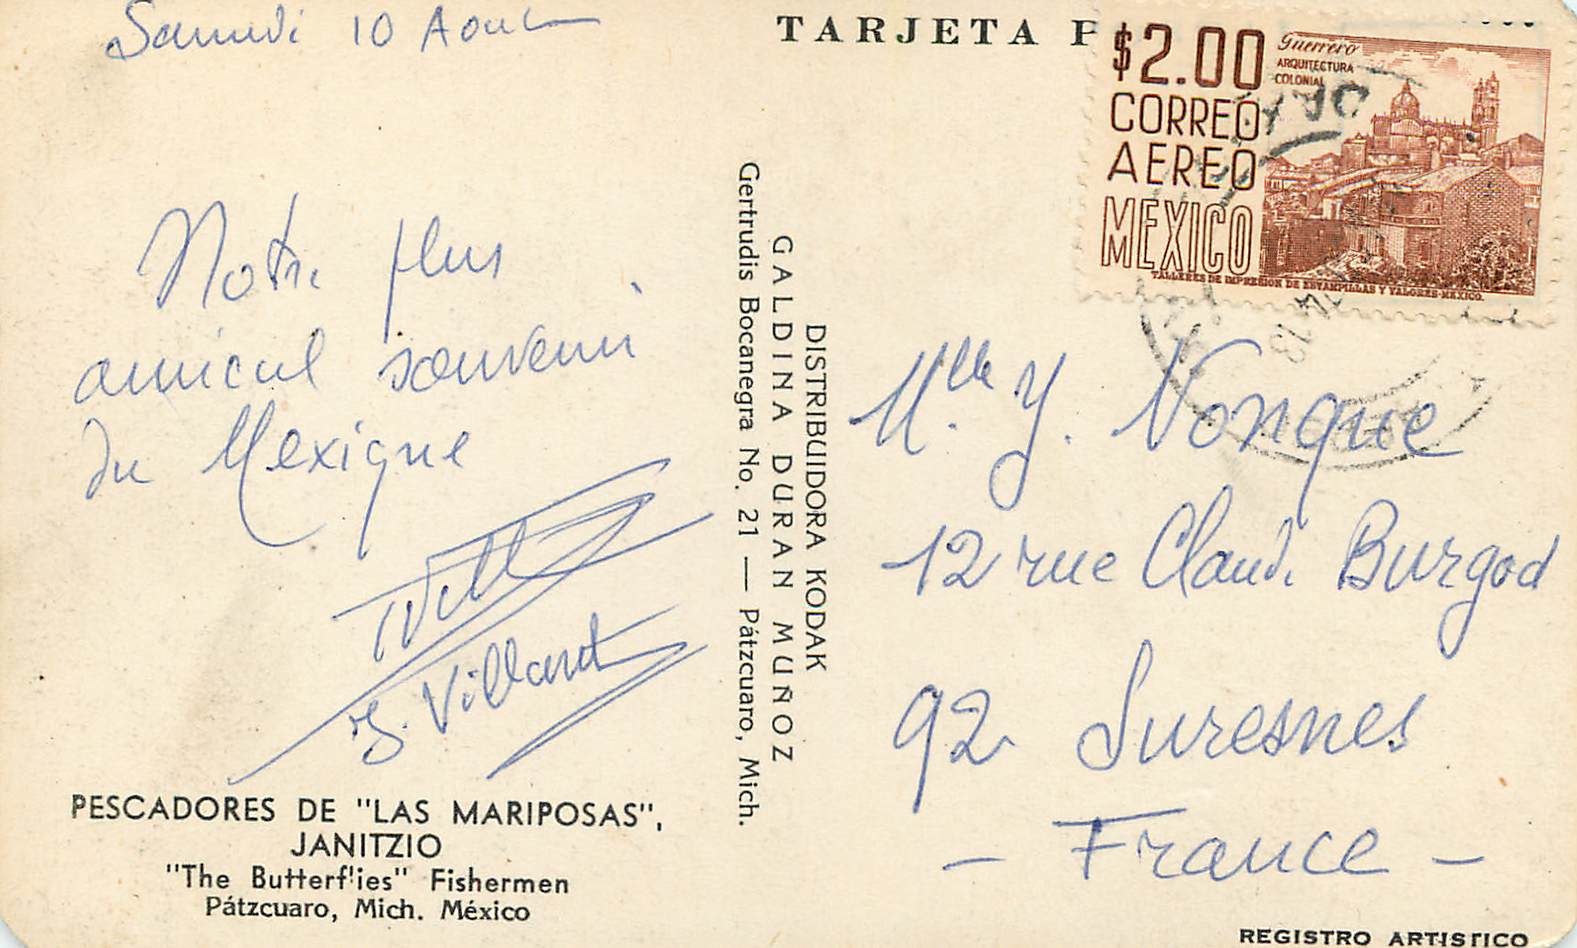 Samedi 10 Aout
Notre plus
amical souvenir
du Mexique
Y. Villard
PESCADORES DE "LAS MARIPOSAS",
JANITZIO
"The Butterflies" Fishermen
Pátzcuaro, Mich. México
Gertrudis Bocanegra No. 21 — Pátzcuaro, Mich.
GALDINA DURAN MUÑOZ
DISTRIBUIDORA KODAK
TARJETA P
$2.00
CORREO
AEREO
MEXICO
Guerrero
ARQUITECTURA
COLONIAL
TALLERES DE IMPRESION DE ESTAMPILLAS Y VALORES-MEXICO.
Mlle Y. Nonque
12 rue Claude Burgod
92 Suresnes
- France -
REGISTRO ARTISTICO